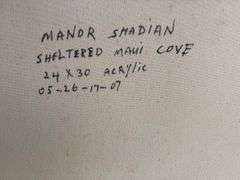 MANOR SHADIAN
SHELTERED MAUI COVE
24 X 30 ACRYLIC
05-26-17-07